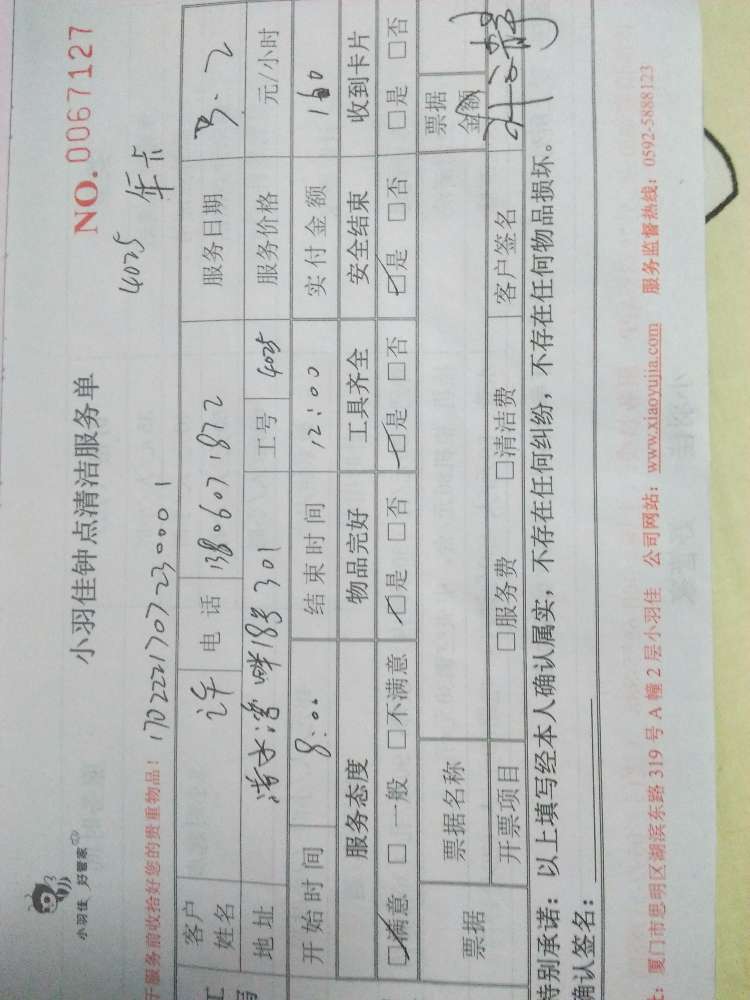 小羽佳 好管家
小羽佳钟点清洁服务单
NO.0067127
于服务前收拾好您的贵重物品!
1702221707230001
4025 年卡
客户姓名 许 电话 13806071872 服务日期 3.2
地址 301 工号 4025 服务价格 元/小时
开始时间 8:00 结束时间 12:00 实付金额 160
服务态度 物品完好 工具齐全 安全结束 收到卡片
☑满意 □一般 □不满意 ☑是 □否 ☑是 □否 ☑是 □否 □是 □否
票据 票据名称 票据金额
开票项目 □服务费 □清洁费 客户签名
特别承诺：以上填写经本人确认属实，不存在任何纠纷，不存在任何物品损坏。
确认签名：
厦门市思明区湖滨东路 319 号 A 幢 2 层小羽佳 公司网站：www.xiaoyujia.com 服务监督热线：0592-5888123